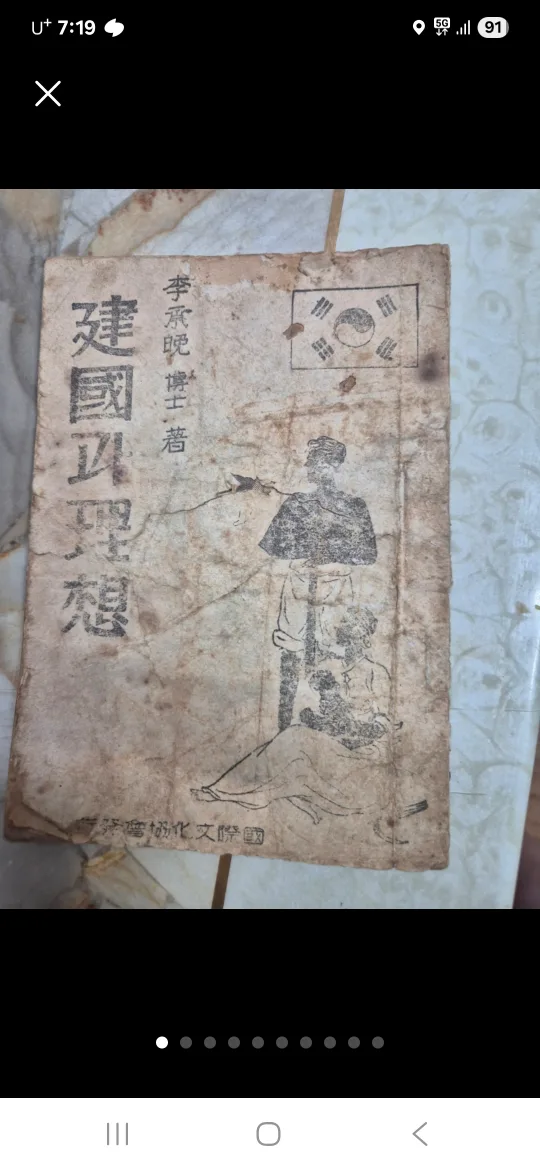 U+ 7:19
5G
91
李承晩 博士 著
建國과理想
國際文化協會